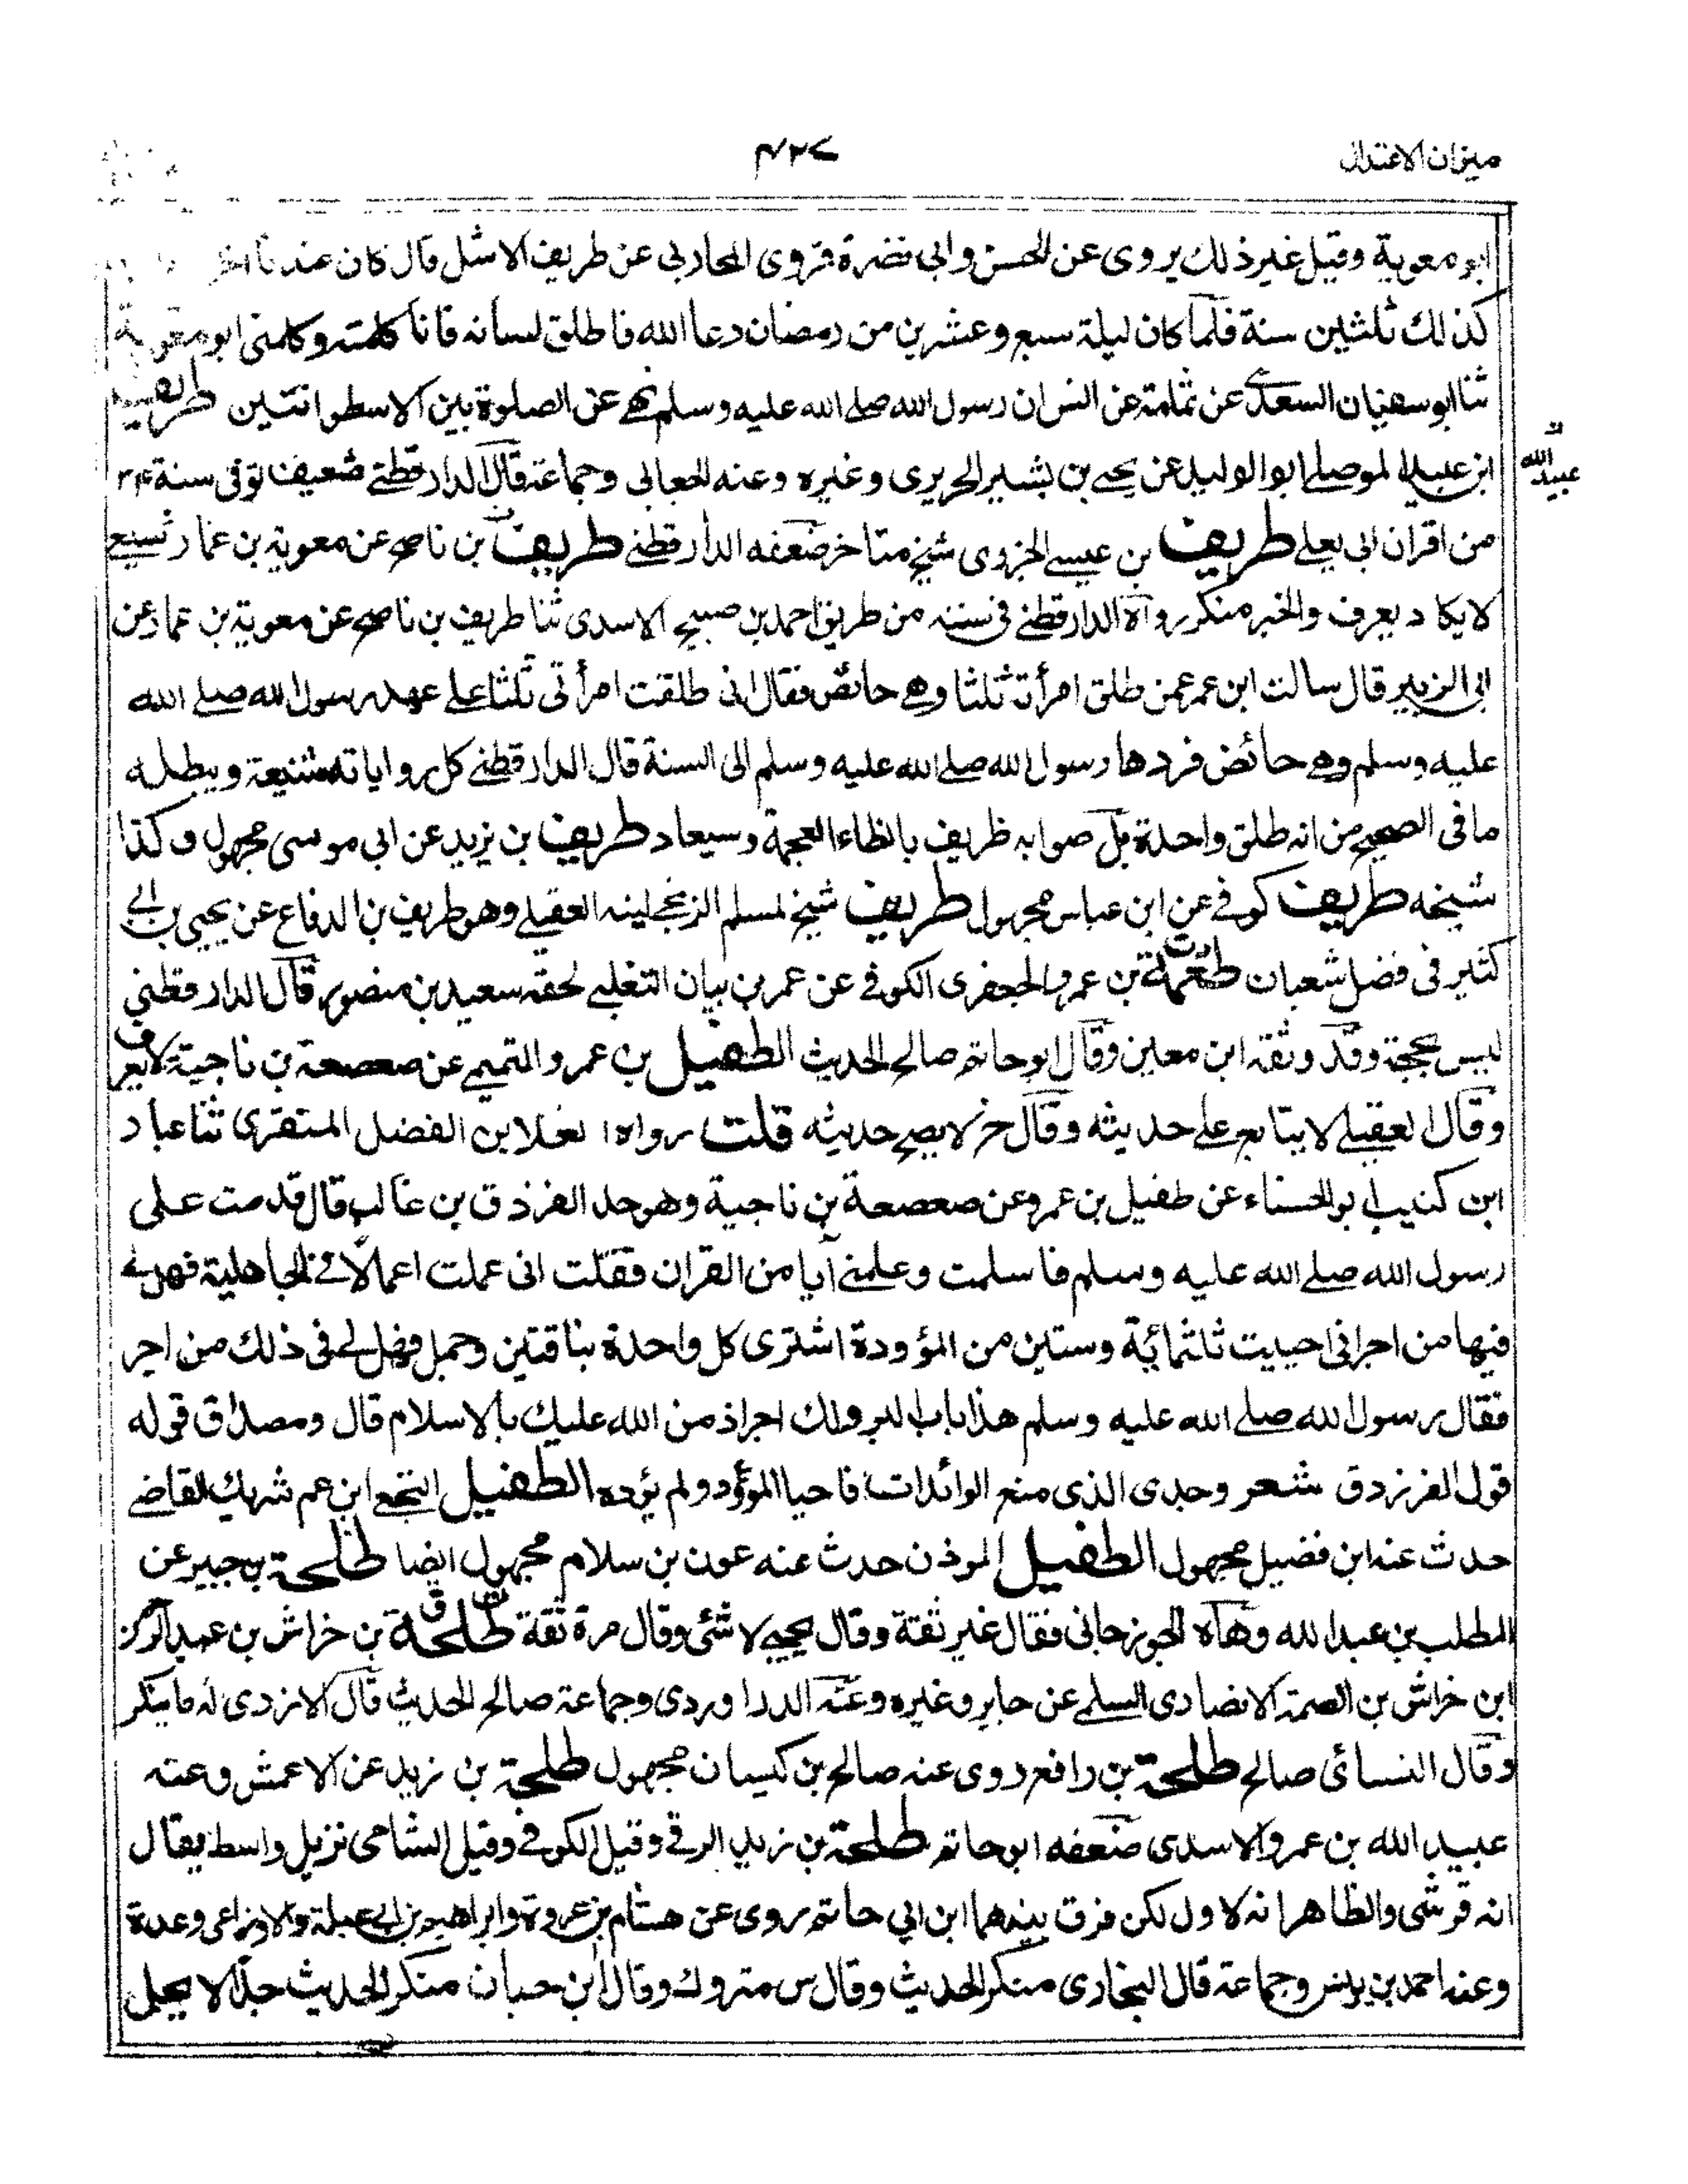 ميزان الاعتدال
۴۲۷
ابو معوية وقيل غير ذلك يروى عن الحسن وابى نضرة فروى المحاربى عن طريف الاشل قال كان عندنا اخر
كذلك ثلثين سنة فلما كان ليلة سبع وعشرين من رمضان دعا الله فاطلق لسانه فانا كلمته وكلمنى ابو معوية
ثنا ابو سفيان السعدى عن ثمامة عن انس ان رسول الله صلے الله عليه وسلم نهے عن الصلوة بين الاسطوانتين طريف
ابن عبيد الموصلے ابو الوليد عن يحيے بن بشير الحريرى وغيره وعنه الجعابى وجماعة قال الدارقطنے ضعيف توفى سنة ۳۰۴
عبيد الله
من اقران ابى يعلے طريف بن عيسے الجزرى شيخ متاخر ضعفه الدارقطنے طريف بن ناصح عن معوية بن عمار شيع
لا يكاد يعرف والخبر منكر رواه الدارقطنے فى سننه من طريق احمد بن صبيح الاسدى ثنا طريف بن ناصح عن معوية بن عمار عن
ابى الزبير قال سالت ابن عمر عمن طلق امرأته ثلثا وهے حائض فقال انى طلقت امرأتى ثلثا علے عهد رسول الله صلے الله
عليه وسلم وهے حائض فردها رسول الله صلے الله عليه وسلم الى السنة قال الدارقطنے كل رواياته شنيعة ويبطله
ما فى الصحيح من انه طلق واحدة بل صوابه ظريف بالظاء المعجمة وسيعاد طريف بن يزيد عن ابى موسى مجهول وكذا
شيخه طريف كوفے عن ابن عباس مجهول طريف شيخ لمسلم الزنجے لينه العقيلے وهو طريف بن الدفاع عن يحيى بن ابے
كثير فى فضل شعبان طعمة بن عمرو الجعفرى الكوفے عن عمر بن بيان التغلبے لحقه سعيد بن منصور قال الدارقطنى
ليس بحجة وقد وثقه ابن معين وقال ابو حاتم صالح الحديث الطفيل بن عمرو التميمے عن صعصعة بن ناجية لا يعرف
وقال العقيلے لا يتابع علے حديثه وقال خ لا يصح حديثه قلت رواه العلا بن الفضل المنقرى ثنا عباد
ابن كسيب ابو الحسناء عن طفيل بن عمرو عن صعصعة بن ناجية وهو جد الفرزدق بن غالب قال قدمت على
رسول الله صلے الله عليه وسلم فاسلمت وعلمنے آيا من القران فقلت انى عملت اعمالا فے الجاهلية فهل لے
فيها من اجر انى احييت ثلثمائة وستين من المؤودة اشترى كل واحدة بناقتين وجمل فهل لے فى ذلك من اجر
فقال رسول الله صلے الله عليه وسلم هذا باب البر ولك اجر اذ من الله عليك بالاسلام قال ومصداق قوله
قول الفرزدق شعر وجدى الذى منع الوائدات؛ فاحيا الموؤد ولم يؤده الطفيل النخعے ابن عم شريك القاضے
حدث عنه ابن فضيل مجهول الطفيل الموذن حدث عنه عون بن سلام مجهول ايضا طلحة بن جبير عن
المطلب بن عبد الله وهاه الجوزجانى فقال غير ثقة وقال يحيے لا شئ وقال مرة ثقة طلحة ت ق بن خراش بن عبد الرحمن
ابن خراش بن الصمة الانصارى السلمے عن جابر وغيره وعنه الدراوردى وجماعة صالح الحديث قال الازدى له ما ينكر
وقال النسائى صالح طلحة بن رافع روى عنه صالح بن كيسان مجهول طلحة بن زيد عن الاعمش وعنه
عبيد الله بن عمرو الاسدى ضعفه ابو حاتم طلحة بن زيد الرقے وقيل الكوفے وقيل الشامى نزيل واسط يقال
انه قرشى والظاهر انه الاول لكن فرق بينهما ابن ابى حاتم روى عن هشام بن عروة وابراهيم بن ابے عبلة والاوزاعى وعدة
وعنه احمد بن يونس وجماعة قال البخارى منكر الحديث وقال س متروك وقال ابن حبان منكر الحديث جدا لا يحل